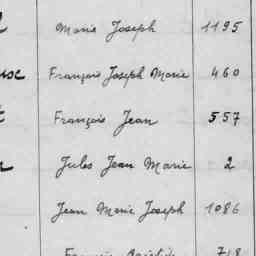 Marie Joseph 1195
François Joseph Marie 460
François Jean 557
Jules Jean Marie 2
Jean Marie Joseph 1086
718